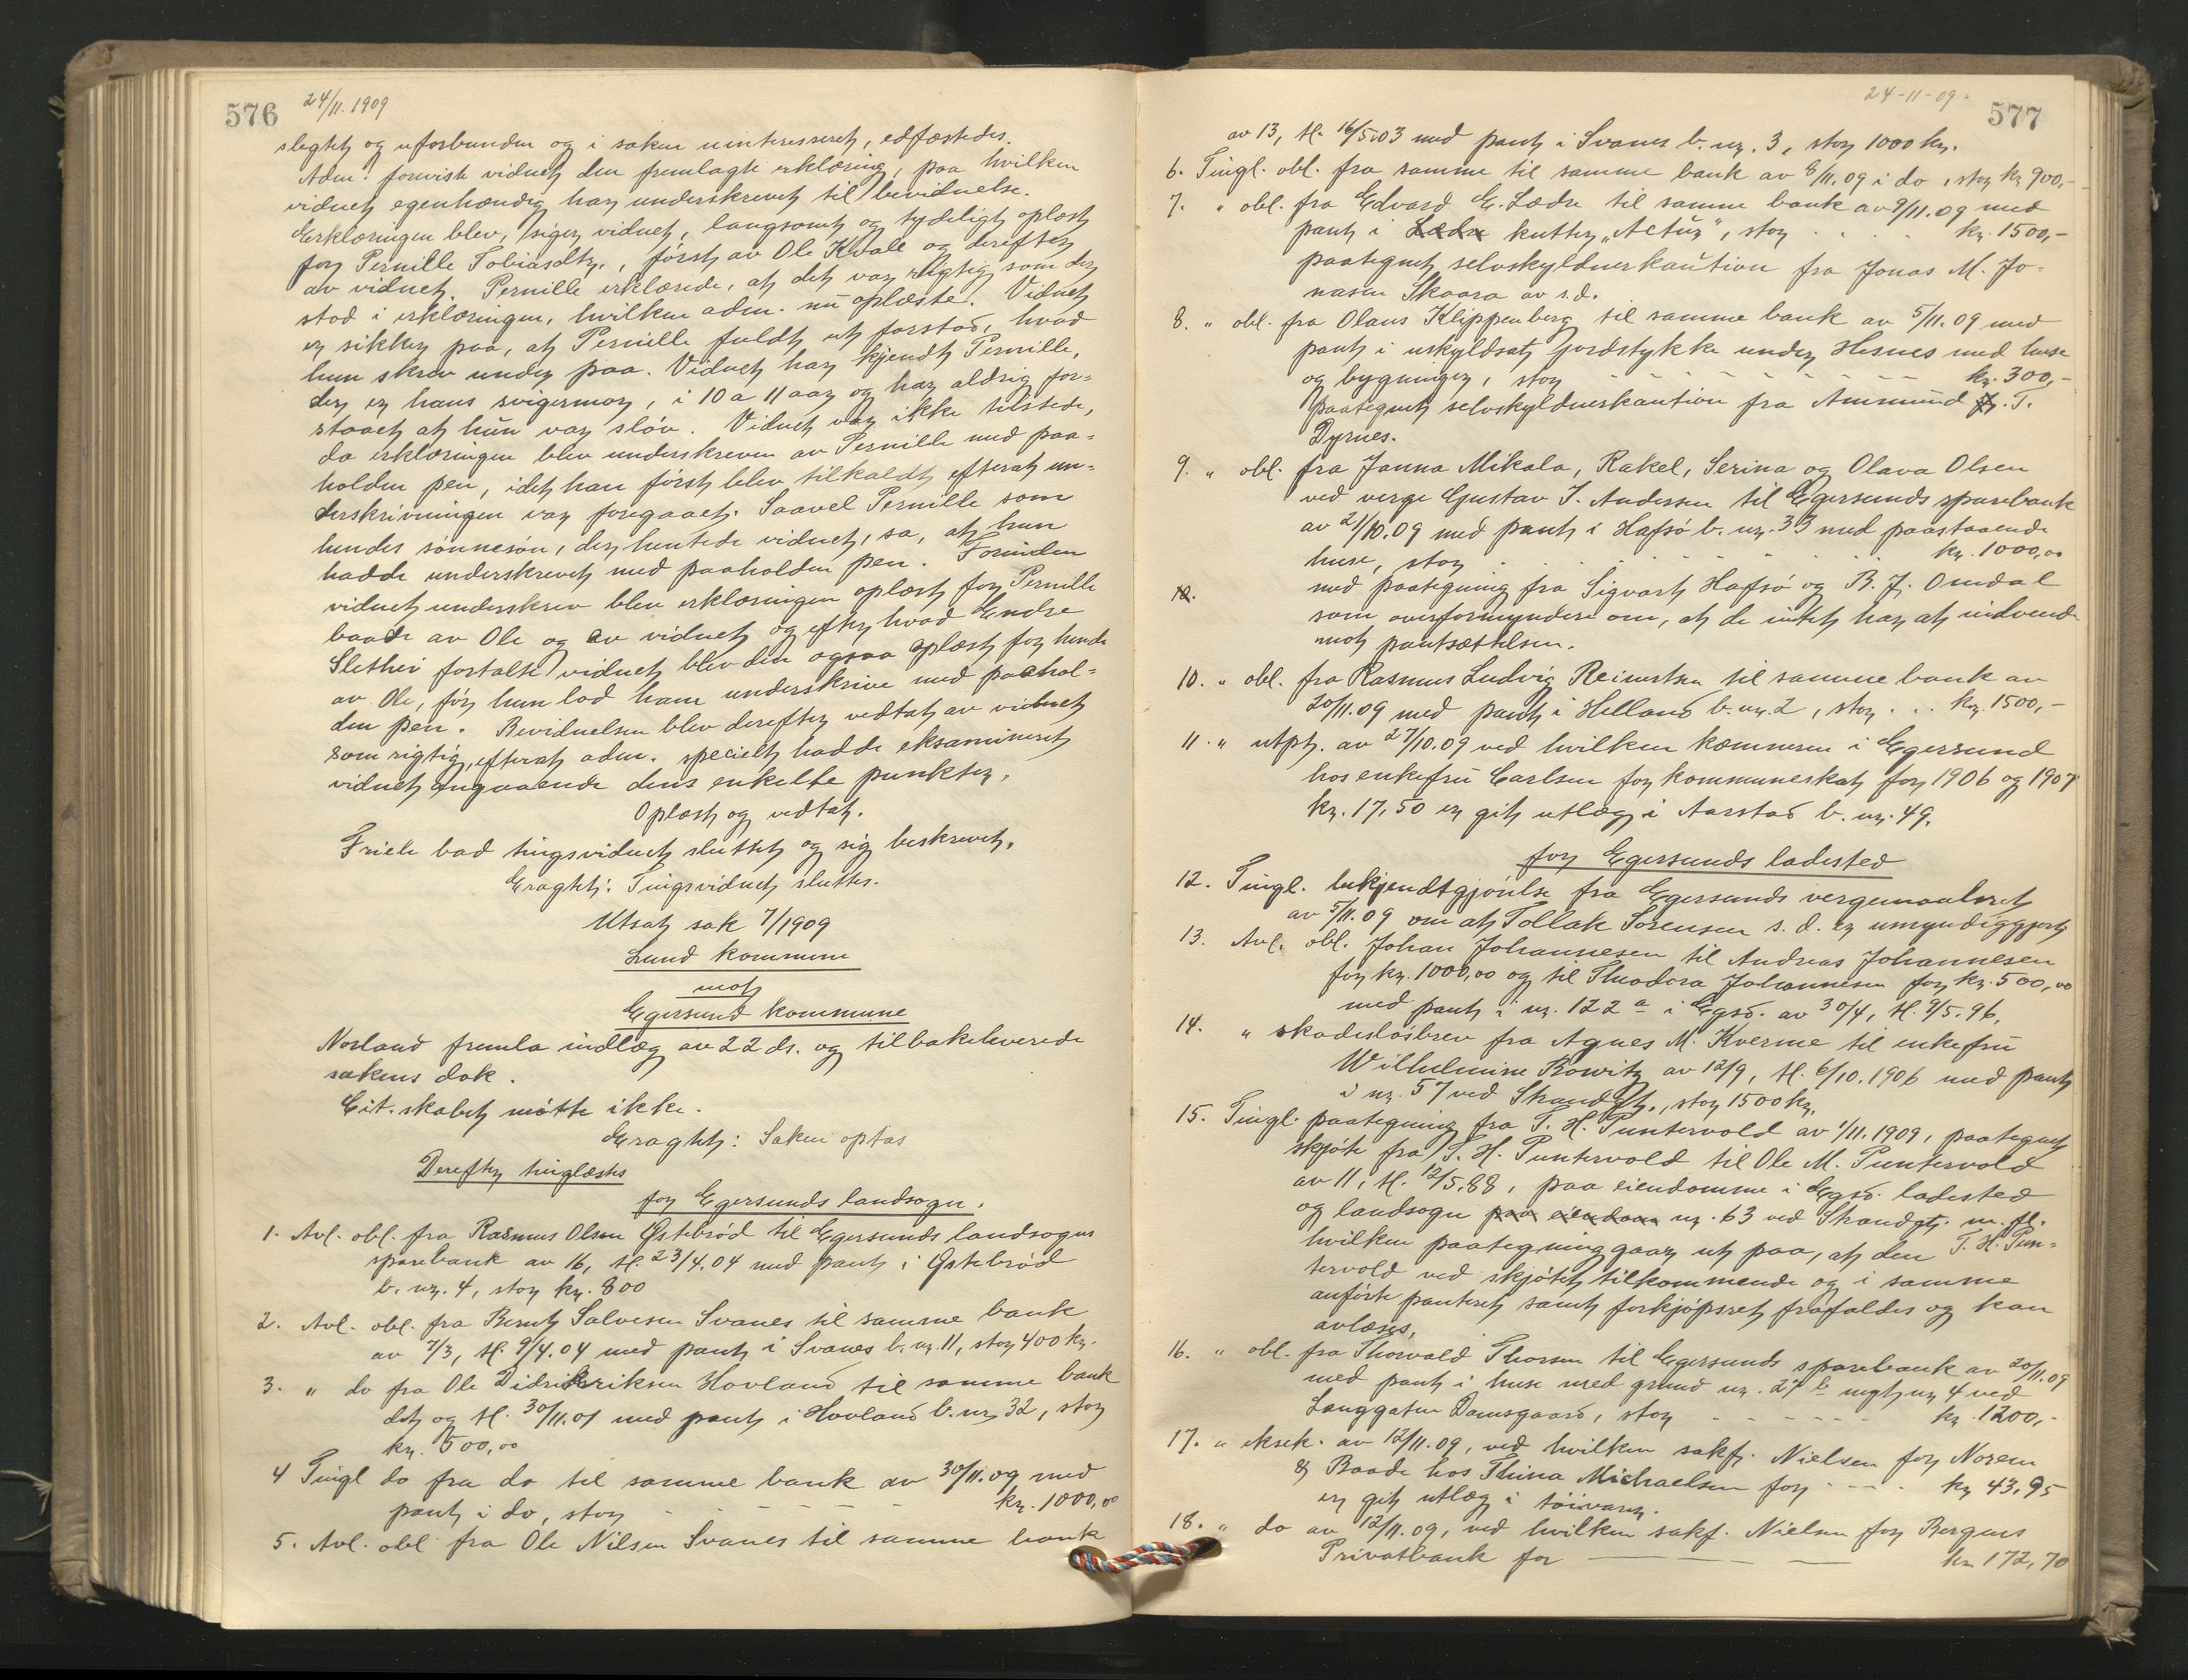 576 24/11. 1909
slegtet og uforbunden og i saken uinteresseret, edfæstedes.
Adm. foreviste vidnet den fremlagte erklæring, paa hvilken
vidnet egenhændig har underskrevet til bevidnelse.
Erklæringen blev, siger vidnet, langsomt og tydeligt oplæst
for Pernille Tobiasdtr., først av Ole Kvale og derefter
av vidnet. Pernille erklærede, at det var rigtig som der
stod i erklæringen, hvilken adm. nu oplæste. Vidnet
er sikker paa, at Pernille fuldt ut forstod, hvad
hun skrev under paa. Vidnet har kjendt Pernille,
der er hans svigermor, i 10 a 11 aar og har aldrig for-
staaet at hun var sløv. Vidnet var ikke tilstede,
da erklæringen blev underskreven av Pernille med paa-
holden pen, idet han først blev tilkaldt efterat un-
derskrivningen var foregaaet. Saavel Pernille som
hendes sønnesøn, der hentede vidnet, sa, at hun
hadde underskrevet med paaholden pen. Forinden
vidnet underskrev blev erklæringen oplæst for Pernille
baade av Ole og av vidnet og efter hvad Endre
Slethei fortalte vidnet blev den ogsaa oplæst for hende
av Ole, før hun lod ham underskrive med paahol-
den pen. Bevidnelsen blev derefter vedtat av vidnet
som rigtig, efterat adm. specielt hadde eksamineret
vidnet angaaende dens enkelte punkter.
Oplæst og vedtat.
Friele bad tingsvidnet sluttet og sig beskrevet.
Eragtet: Tingsvidnet sluttes.
Utsat sak 7/1909
Lund kommune
mot
Egersund kommune
Norland fremla indlæg av 22 ds. og tilbakeleverede
sakens dok.
Cit. skabet møtte ikke.
Eragtet: Saken optas
Derefter tinglæstes
for Egersunds landsogn.
1. Avl. obl. fra Rasmus Olsen Østebrød til Egersunds landsogns
sparebank av 16, tl. 23/4.04 med pant i Østebrød
b. nr. 4, stor kr. 800
2. Avl. obl. fra Bernt Salvesen Svanes til samme bank
av 7/3, tl. 9/4.04 med pant i Svanes b. nr. 11, stor 400 kr.
3. " do fra Ole Didriksen Hovland til samme bank
dat og tl. 30/11.01 med pant i Hovland b. nr 32, stor
kr. 500,00
4 Tingl do fra do til samme bank av 30/11.09 med
pant i do, stor - - - - - kr. 1000,00
5. Avl. obl fra Ole Nilsen Svanes til samme bank
24-11-09. 577
av 13, tl. 16/5.03 med pant i Svanes b. nr. 3, stor 1000 kr.
6. Tingl. obl. fra samme til samme bank av 8/11.09 i do, stor kr 900,-
7. " obl. fra Edvard E. Lædre til samme bank av 9/11.09 med
pant i kutter "Actur", stor . . . . kr. 1500,-
paategnet selvskyldnerkaution fra Jonas M. Jo-
nasen Skaara av s.d.
8. " obl. fra Olaus Klippenberg til samme bank av 5/11.09 med
pant i uskyldsat jordstykke under Hesnes med huse
og bygninger, stor - - - - - - kr. 300,-
paategnet selvskyldnerkaution fra Ammund T.
Dyrnes.
9. " obl. fra Janna Mikala, Rakel, Serina og Olava Olsen
ved verge Gustav I. Andersen til Egersunds sparebank
av 21/10.09 med pant i Hafsø b. nr. 33 med paastaaende
huse, stor . . . . . . kr. 1000,00
10. med paategning fra Sigvart Hafsø og B. J. Omdal
som overformyndere om, at de intet har at indvende
mot pantsættelsen.
10. " obl. fra Rasmus Ludvig Reinertsen til samme bank av
20/11.09 med pant i Helland b. nr. 2, stor . . . kr. 1500,-
11. " utpt. av 27/10.09 ved hvilken kæmneren i Egersund
hos enkefru Carlsen for kommuneskat for 1906 og 1907
kr. 17,50 er git utlæg i Aarstad b. nr. 49.
for Egersunds ladested
12. Tingl. bekjendtgjørelse fra Egersunds vergemaalsret
av 5/11.09 om at Tollak Sørensen s. d. er umyndiggjort
13. Avl. obl. Johan Johannesen til Andreas Johannesen
for kr. 1000,00 og til Theodora Johannesen for kr. 500,00
med pant i nr. 122 a i Egsd. av 30/4, tl. 9/5.96.
14. " skadesløsbrev fra Agnes M. Kverme til enkefru
Wilhelmine Rowitz av 12/9, tl. 6/10.1906 med pant
i nr. 57 ved Strandgt., stor 1500 kr.
15. Tingl. paategning fra T. H. Puntervold av 1/11. 1909, paategnet
skjøte fra T. H. Puntervold til Ole M. Puntervold
av 11, tl. 12/5.88, paa eiendomme i Egsd. ladested
og landsogn paa eiendom nr. 63 ved Strandgt. m. fl.
hvilken paategning gaar ut paa, at den T. H. Pun-
tervold ved skjøtet tilkommende og i samme
anførte panteret samt forkjøpsret frafaldes og kan
avlæses.
16. " obl. fra Thorvald Thorsen til Egersunds sparebank av 20/11.09
med pant i huse med grund nr. 27 b nyt nr 4 ved
Langgaten Damsgaard, stor - - - - - kr. 1200,-
17. " eksek. av 12/11.09, ved hvilken sakf. Nielsen for Noren
& Baade hos Thina Michaelsen for - - - - kr 43,95
er git utlæg i tøivarer.
18. " do av 12/11.09, ved hvilken sakf. Nielsen for Bergens
Privatbank for — — — kr 172,70